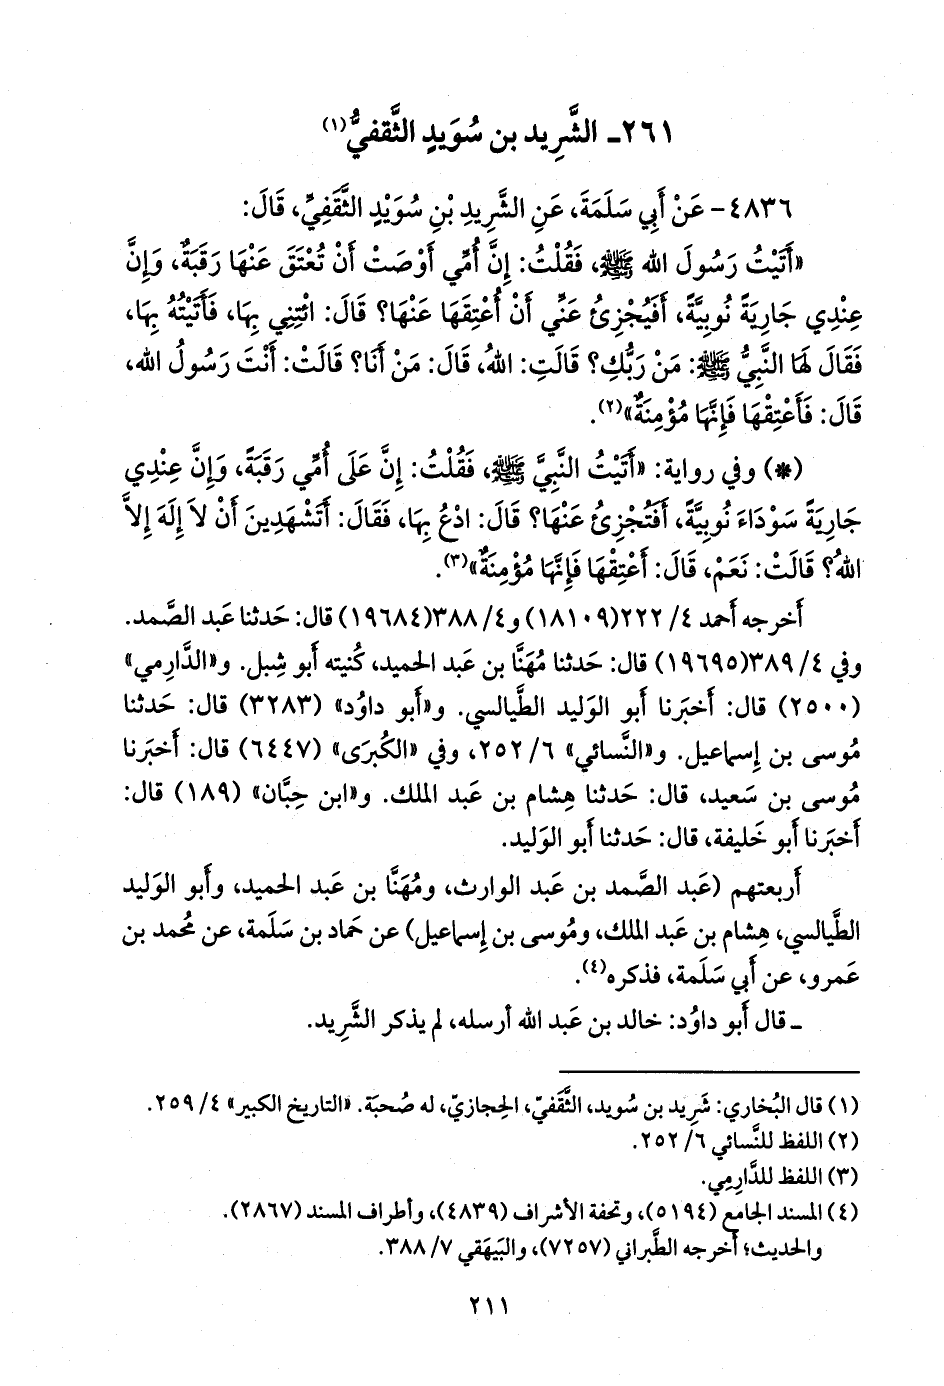 ٢٦١ـ الشَّرِيد بن سُوَيدٍ الثَّقفيُّ(١)
٤٨٣٦- عَنْ أَبِي سَلَمَةَ، عَنِ الشَّرِيدِ بْنِ سُوَيْدٍ الثَّقَفِيِّ، قَالَ:
«أَتَيْتُ رَسُولَ الله ﷺ، فَقُلْتُ: إِنَّ أُمِّي أَوْصَتْ أَنْ تُعْتَقَ عَنْهَا رَقَبَةٌ، وَإِنَّ
عِنْدِي جَارِيَةً نُوبِيَّةً، أَفَيُجْزِئُ عَنِّي أَنْ أُعْتِقَهَا عَنْهَا؟ قَالَ: ائْتِنِي بِهَا، فَأَتَيْتُهُ بِهَا،
فَقَالَ لَهَا النَّبِيُّ ﷺ: مَنْ رَبُّكِ؟ قَالَتِ: اللهُ، قَالَ: مَنْ أَنَا؟ قَالَتْ: أَنْتَ رَسُولُ الله،
قَالَ: فَأَعْتِقْهَا فَإِنَّهَا مُؤْمِنَةٌ»(٢).
(*) وفي رواية: «أَتَيْتُ النَّبِيَّ ﷺ، فَقُلْتُ: إِنَّ عَلَى أُمِّي رَقَبَةً، وَإِنَّ عِنْدِي
جَارِيَةً سَوْدَاءَ نُوبِيَّةً، أَفَتُجْزِئُ عَنْهَا؟ قَالَ: ادْعُ بِهَا، فَقَالَ: أَتَشْهَدِينَ أَنْ لاَ إِلَهَ إِلاَّ
اللهُ؟ قَالَتْ: نَعَمْ، قَالَ: أَعْتِقْهَا فَإِنَّهَا مُؤْمِنَةٌ»(٣).
أَخرجه أَحمد ٤/ ٢٢٢(١٨١٠٩) و٤/ ٣٨٨(١٩٦٨٤) قال: حَدثنا عَبد الصَّمد.
وفي ٤/ ٣٨٩(١٩٦٩٥) قال: حَدثنا مُهَنَّا بن عَبد الحميد، كُنيته أَبو شِبل. و«الدَّارمي»
(٢٥٠٠) قال: أَخبَرنا أَبو الوَليد الطَّيالسي. و«أَبو داوُد» (٣٢٨٣) قال: حَدثنا
مُوسى بن إِسماعيل. و«النَّسائي» ٦/ ٢٥٢، وفي «الكُبرَى» (٦٤٤٧) قال: أَخبَرنا
مُوسى بن سَعيد، قال: حَدثنا هِشام بن عَبد الملك. و«ابن حِبَّان» (١٨٩) قال:
أَخبَرنا أَبو خَليفة، قال: حَدثنا أَبو الوَليد.
أَربعتهم (عَبد الصَّمد بن عَبد الوارث، ومُهَنَّا بن عَبد الحميد، وأَبو الوَليد
الطَّيالسي، هِشام بن عَبد الملك، ومُوسى بن إِسماعيل) عن حَماد بن سَلَمة، عن مُحمد بن
عَمرو، عن أَبي سَلَمة، فذكره(٤).
ـ قال أَبو داوُد: خالد بن عَبد الله أرسله، لم يذكر الشَّرِيد.
(١) قال البُخاري: شَرِيد بن سُويد، الثَّقَفيّ، الحِجازيّ، له صُحبَة. «التاريخ الكبير» ٤/ ٢٥٩.
(٢) اللفظ للنَّسائي ٦/ ٢٥٢.
(٣) اللفظ للدَّارِمِي.
(٤) المسند الجامع (٥١٩٤)، وتحفة الأشراف (٤٨٣٩)، وأطراف المسند (٢٨٦٧).
والحديث؛ أخرجه الطَّبراني (٧٢٥٧)، والبَيهَقي ٧/ ٣٨٨.
٢١١